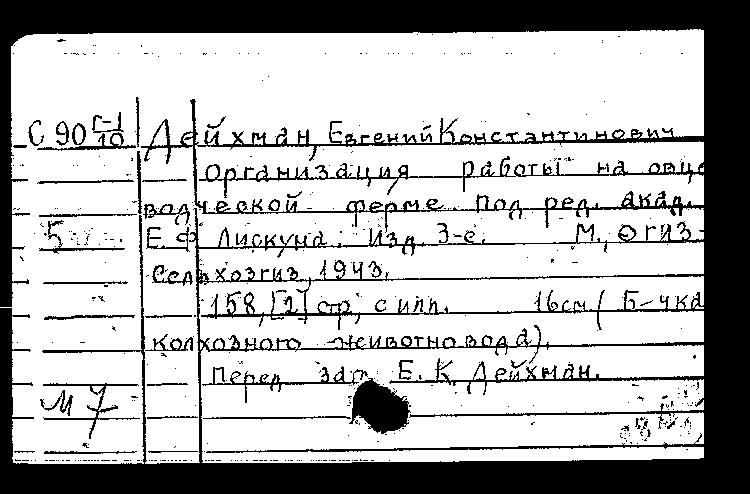 С 90 Г-1/10 Дейхман, Евгений Константинович
Организация работы на овце
водческой ферме. Под ред. акад.
5 Е. Ф. Лискуна. Изд. 3-е. М., ОГИЗ-
Сельхозгиз, 1943.
158, [2] стр, с илл. 16 см ( Б-чка
колхозного животновода).
Перед заг. Е. К. Дейхман.
М 7